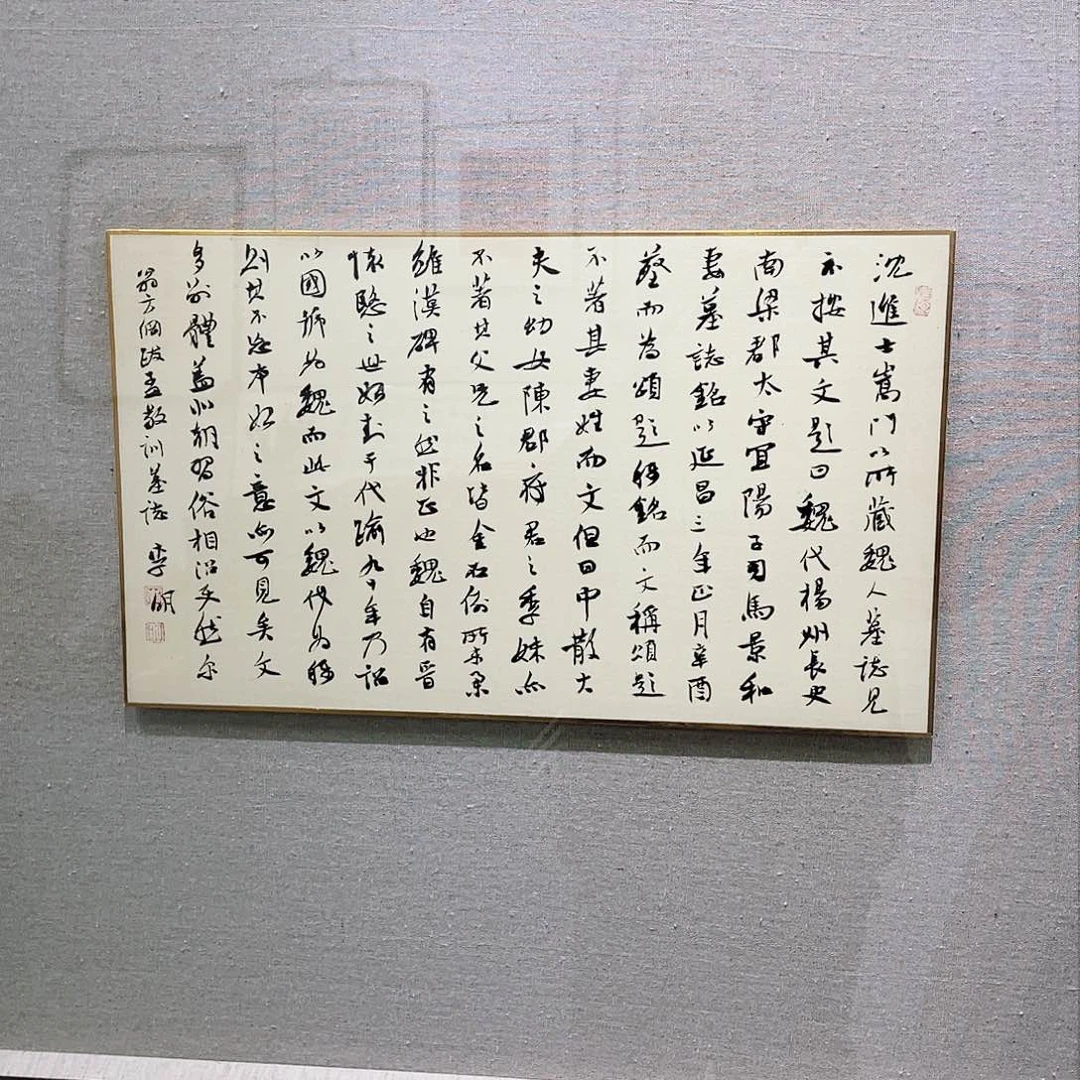 沈進士嵩門以所藏魏人墓誌見
示按其文題曰魏代楊州長史
南梁郡太守宜陽子司馬景和
妻墓誌銘以延昌三年正月辛酉
葬而為頌題稱銘而文稱頌題
不著其妻姓而文但曰中散大
夫之幼女陳郡府君之季妹亦
不著其父兄之名皆金石例所未累
雖漢碑有之然非正也魏自有晉
懷愍之世始封于代踰九十年乃詔
以國號為魏而此文以魏代為稱
則其不忘本始之意亦可見矣文
多別體蓋北朝習俗相沿夫然尔
翁方綱跋孟敬訓墓誌 李明